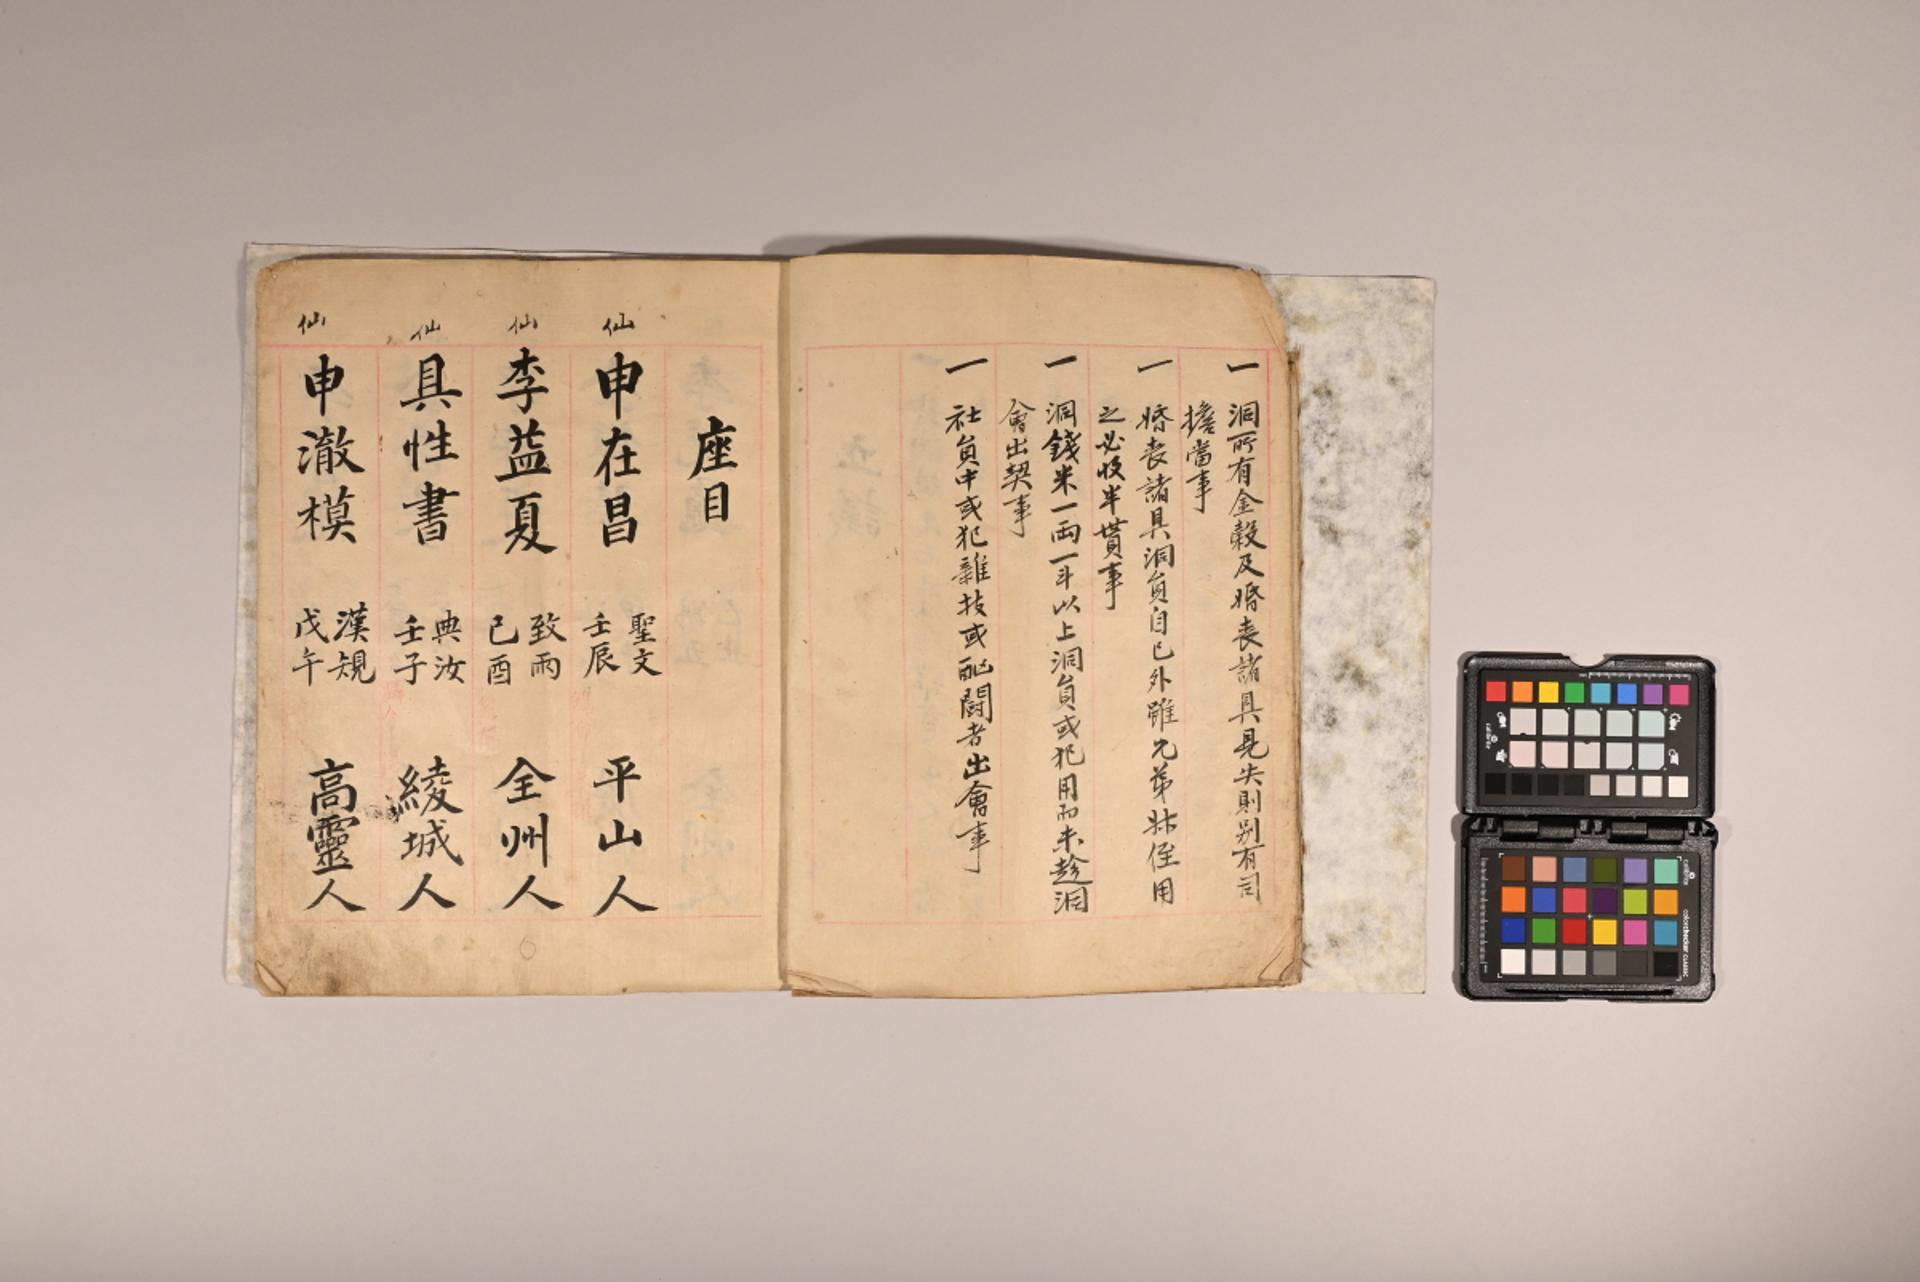 一 洞所有金穀及婚喪諸具見失則別有司
擔當事
一 婚喪諸具洞員自已外雖兄弟叔侄用
之必收半貰事
一 洞錢米一兩一斗以上洞員或犯用而未趁洞
會出契事
一 社員中或犯雜技或酗鬪者出會事
座目
仙 申在昌 聖文 壬辰 平山人
仙 李益夏 致雨 己酉 全州人
仙 具性書 典汝 壬子 綾城人
仙 申澈模 漢規 戊午 高靈人